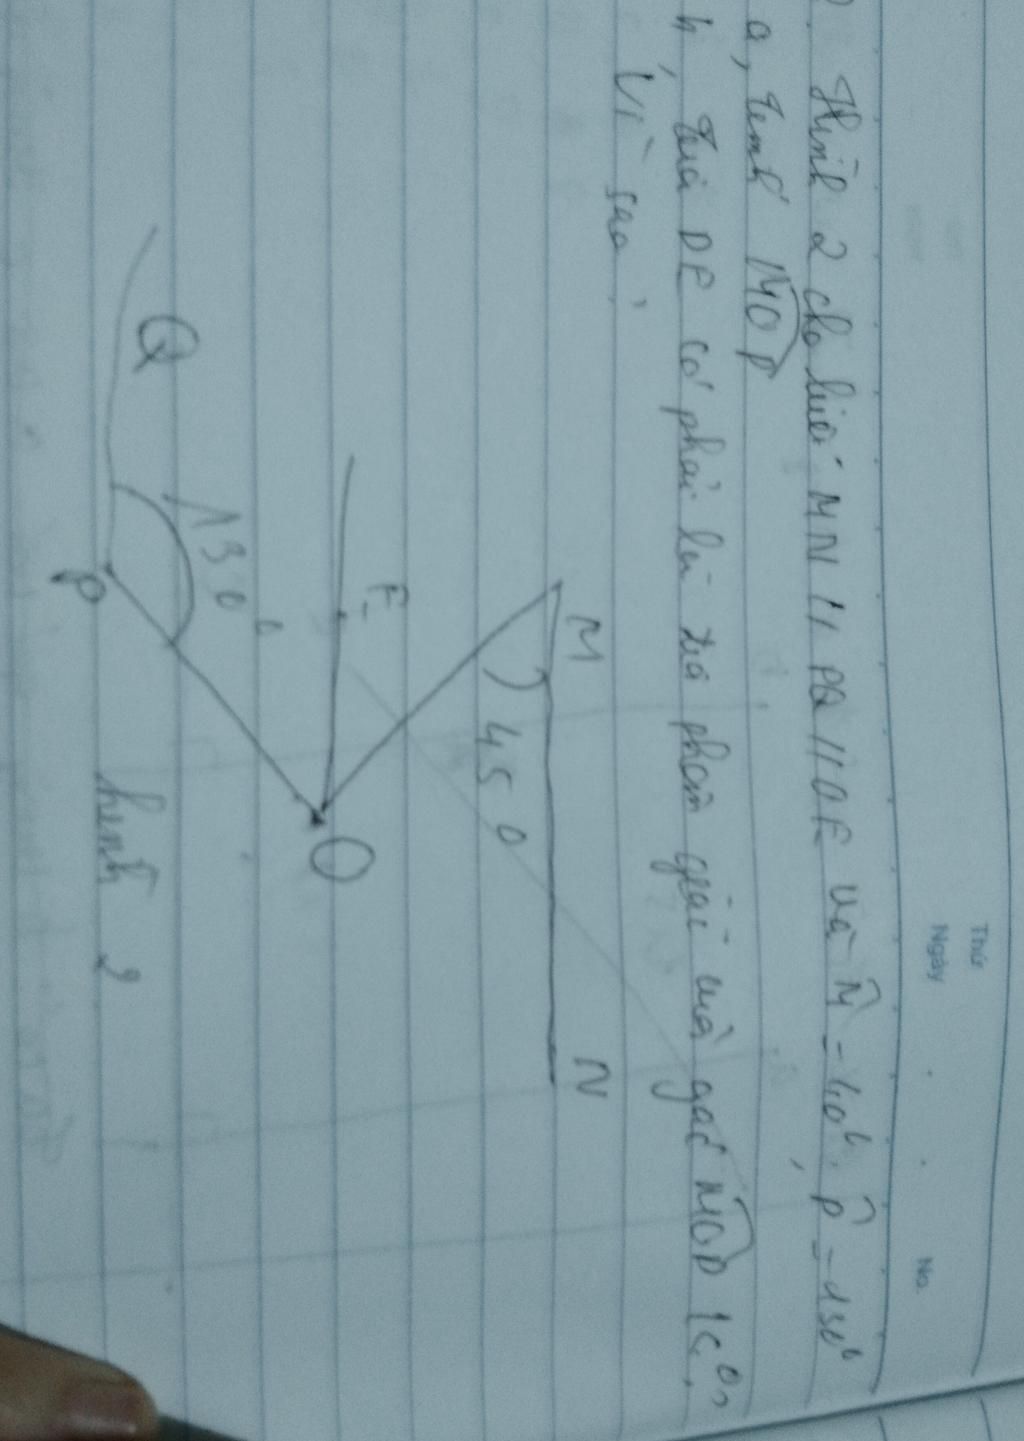 Thứ
Ngày
No.
Hình 2 cho biết MN // PQ // OE và M̂ = 40°, P̂ = 130°
a, tính MOP
b, tia OE có phải là tia phân giác của góc MOP ko?
Vì sao?
M
N
45°
E
O
Q
130°
P
hình 2